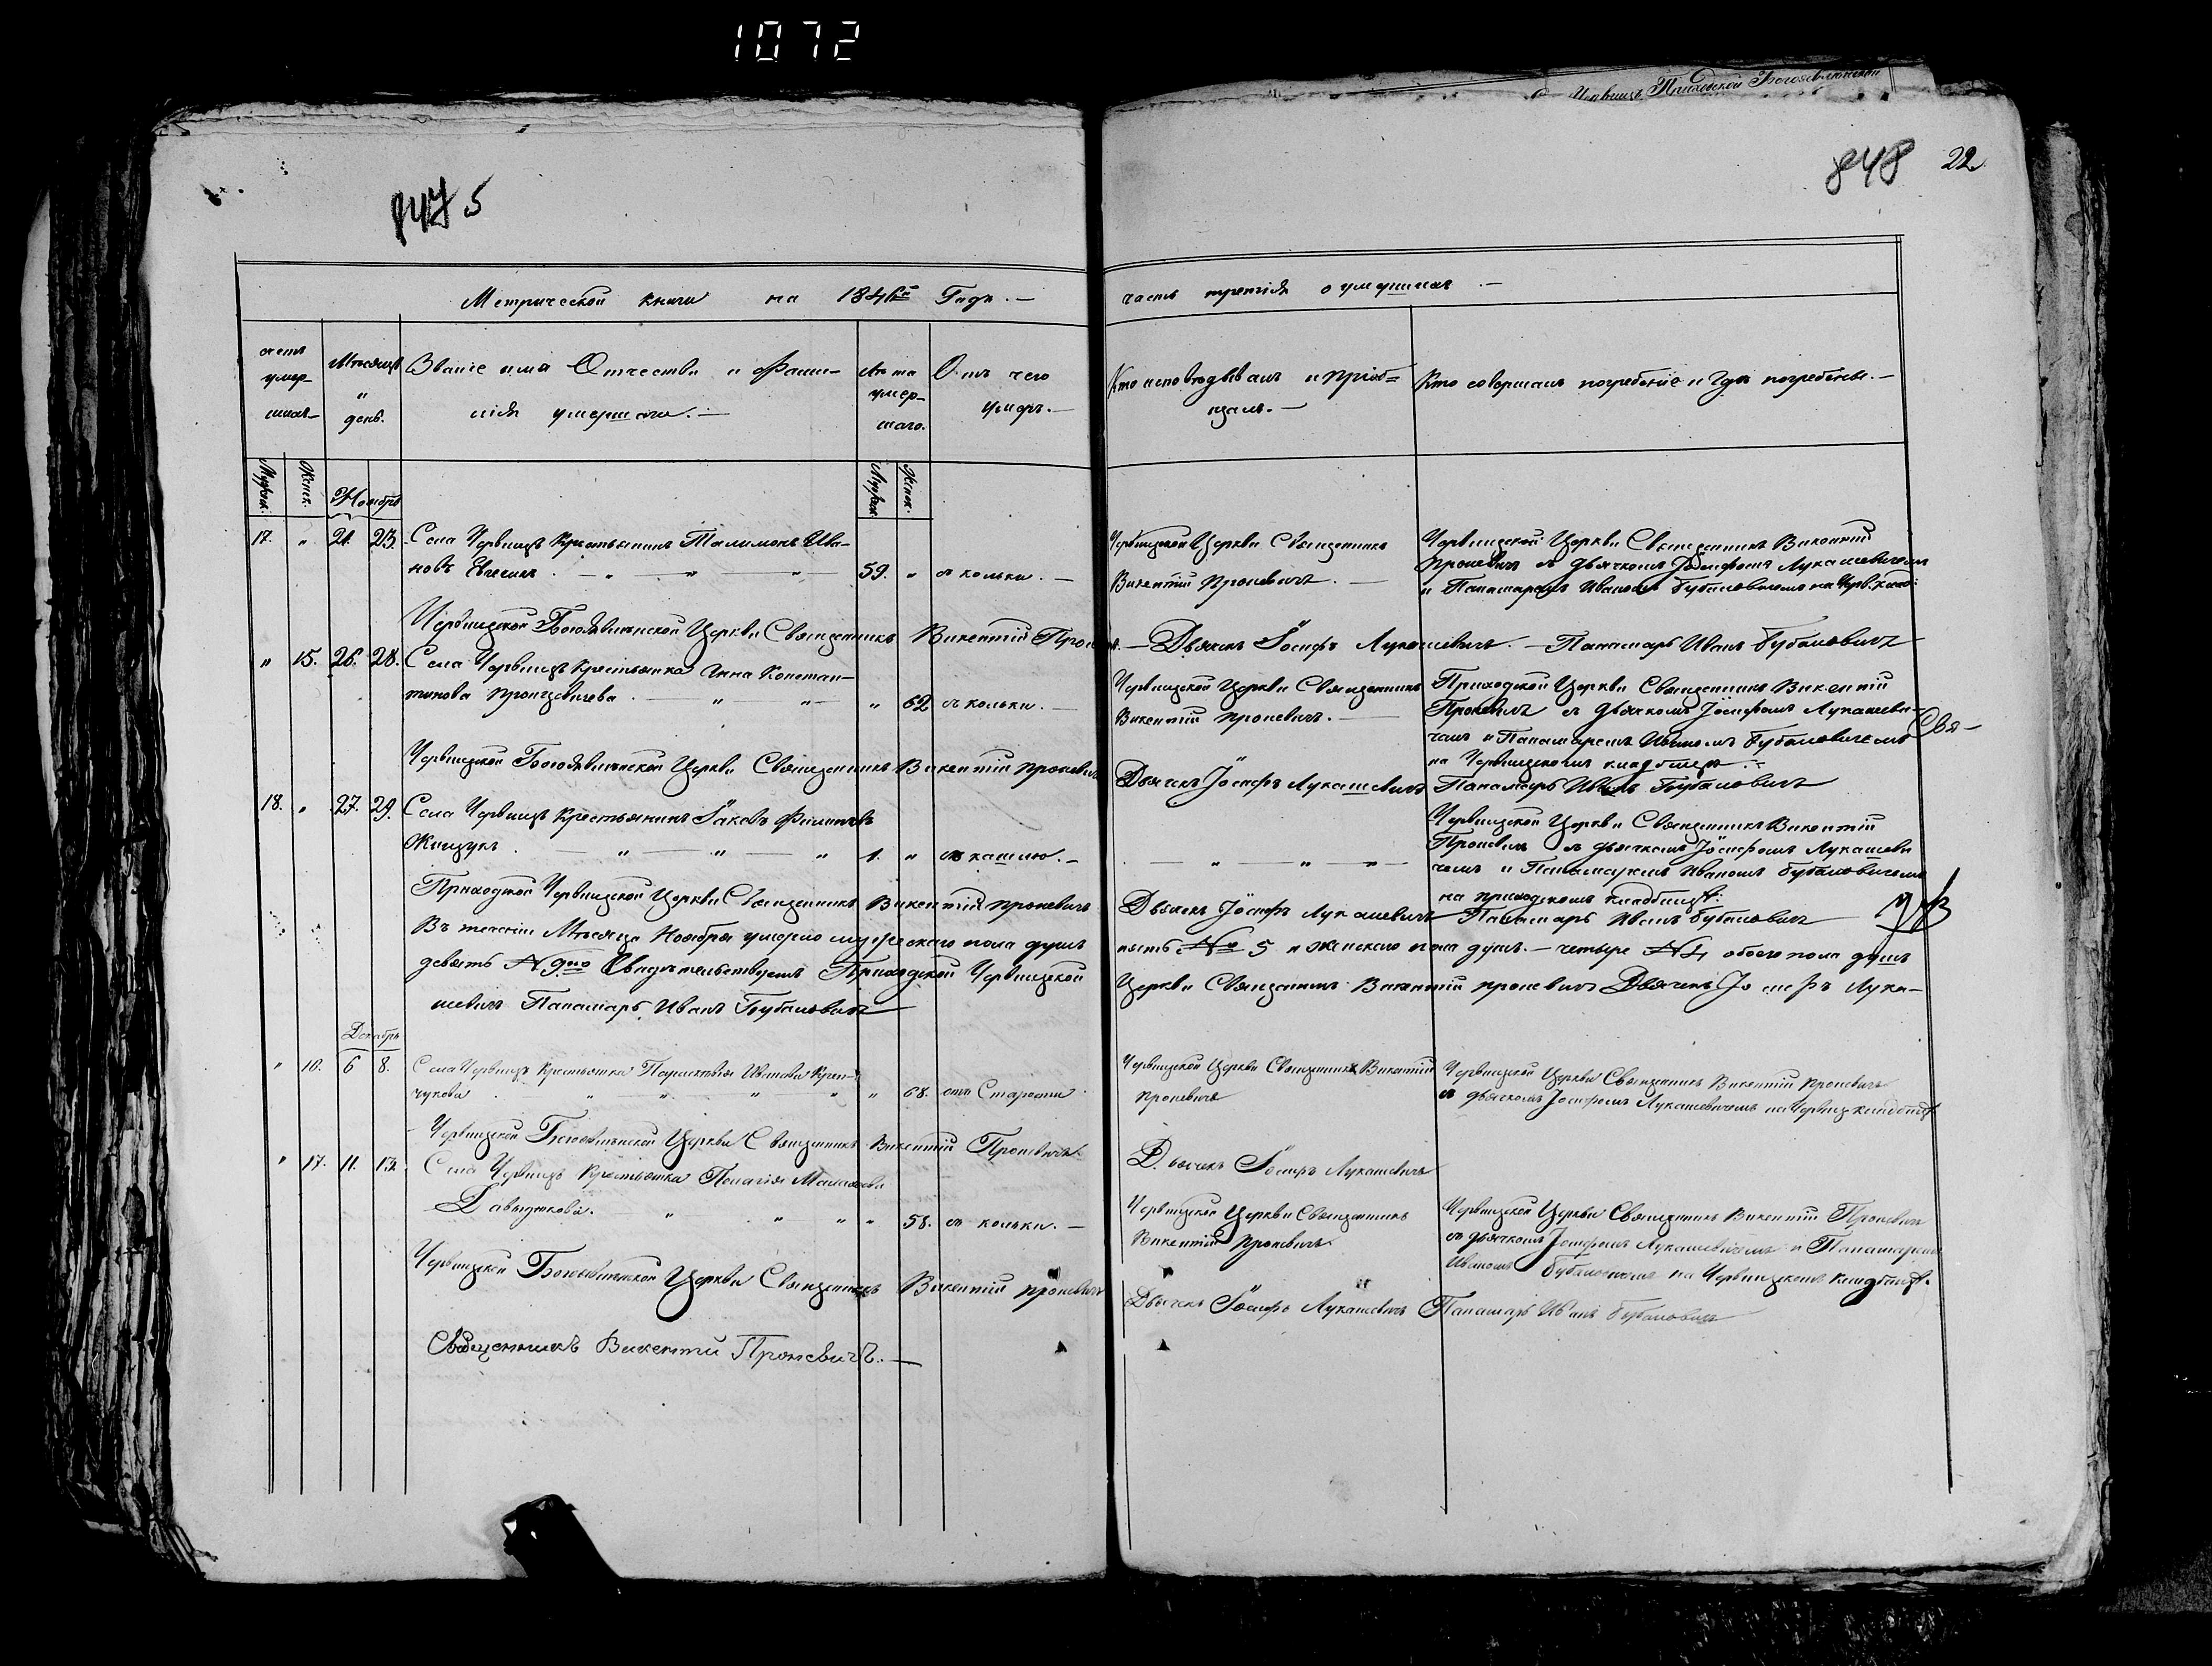 1072
Червищъ Приходской Богоявленской
847 5
848 22
Метрической книги на 1846й Годъ. —
часть третія о умершихъ. —
счетъ умер- шихъ
Мѣсяцъ и день.
Званіе имя Отчество и Фами-
лія умершаго. —
Лѣта умер- шаго.
Отъ чего умеръ. —
Кто исповѣдывалъ и пріоб=
щалъ. —
Кто совершалъ погребеніе и Гдѣ погребены. —
Мужеск.
Женск.
Ноябрь
Мужеск.
Женск.
17. " 21. 23. Села Червищъ Крестьянинъ Ива-
новъ 59. " съ кольки. —
Червищской Церкви Священникъ
Викентій Проневичъ. —
Червищской Церкви Священникъ Викентій
Проневичъ съ дьячкомъ Іосифомъ Лукашевичемъ
и Панамаремъ Иваномъ Бубановичемъ на Черв. клад:
Червищской Богоявленской Церкви Священникъ Викентій
— Дьячекъ Іосифъ Лукашевичъ. — Панамарь Иванъ Бубановичъ
" 15. 26. 28. Села Червищъ Крестьянка Анна Констан-
тинова " 62 съ кольки. —
Червищской Церкви Священникъ
Викентій Проневичъ. —
Приходской Церкви Священникъ Викентій
Проневичъ съ дьячкомъ Іосифомъ Лукашеви-
чемъ и Панамаремъ Иваномъ Бубановичемъ
на Червищскомъ кладбищѣ. —
Свя-
Червищской Богоявленской Церкви Священникъ Викентій Проневичъ
Дьячекъ Іосифъ Лукашевичъ Панамарь Иванъ Бубановичъ
18. " 27. 29. Села Червищъ Крестьянинъ Іаковъ Филиповъ
Жищукъ 1. " съ кашлю. —
Червищской Церкви Священникъ Викентій
Проневичъ съ дьячкомъ Іосифомъ Лукашеви
чемъ и Панамаремъ Иваномъ Бубановичемъ
на приходскомъ кладбищѣ.
Приходской Червищской Церкви Священникъ Викентій Проневичъ
Дьячекъ Іосифъ Лукашевичъ Панамарь Иванъ Бубановичъ
Въ теченіи Мѣсяца Ноября умерло мужескаго пола душъ
пять № 5 и женскаго пола душъ. — четыре № 4 обоего пола душъ
девять № 9 Свидѣтельствуемъ Приходской Червищской
Церкви Священникъ Викентій Проневичъ Дьячекъ Іосифъ Лука-
шевичъ Панамарь Иванъ Бубановичъ
Декабрь
" 16. 6 8. Села Червищъ Крестьянка Параскевія Иванова
чукова " 68. отъ Старости
Червищской Церкви Священникъ Викентій
Проневичъ
Червищской Церкви Священникъ Викентій Проневичъ
съ дьячкомъ Іосифомъ Лукашевичемъ на Червищ кладбищѣ
Червищской Богоявленской Церкви Священникъ Викентій Проневичъ
Дьячекъ Іосифъ Лукашевичъ
" 17. 11. 13. Села Червищъ Крестьянка Пелагія
Давыдюкова. " 58. съ кольки. —
Червищской Церкви Священникъ
Викентій Проневичъ
Червищской Церкви Священникъ Викентій Проневичъ
съ дьячкомъ Іосифомъ Лукашевичемъ и Панамаремъ
Иваномъ Бубановичемъ на Червищскомъ кладбищѣ.
Червищской Богоявленской Церкви Священникъ Викентій Проневичъ
Дьячекъ Іосифъ Лукашевичъ Панамарь Иванъ Бубановичъ
Священникъ Викентій Проневичъ. —